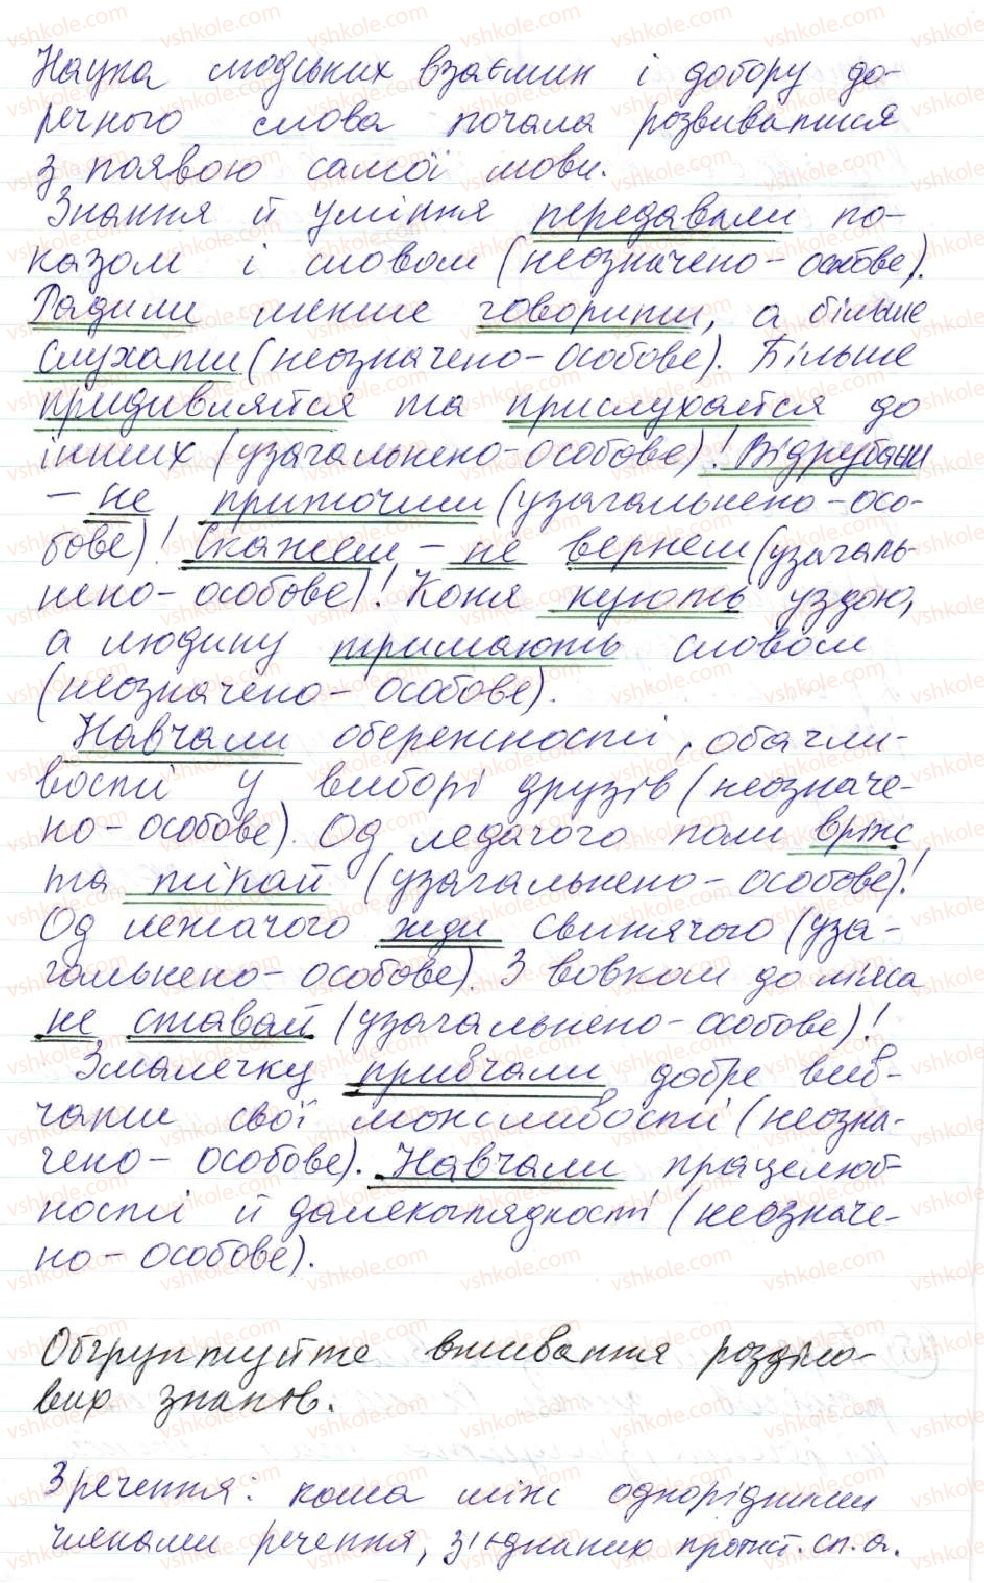 Наука людських взаємин і добору до-
речного слова почала розвиватися
з появою самої мови.
Знання й уміння передавали по-
казом і словом (неозначено-особове).
Радили менше говорити, а більше
слухати (неозначено-особове). Більше
придивляйтся та прислухайтся до
інших (узагальнено-особове)! Відрубаєи
- не приточиш (узагальнено-осо-
бове)! Скажеш - не вернеш (узагаль-
нено-особове)! Коня кують уздою,
а людину тримають словом
(неозначено-особове).
Навчали обережності, обачли-
вості у виборі друзів (неозначе-
но-особове). Од ледачого поли вріж
та тікай (узагальнено-особове)!
Од лежачого жди свинячого (уза-
гальнено-особове). З вовком до м'яса
не ставай (узагальнено-особове)!
Змалечку привчали добре вив-
чати свої можливості (неозна-
чено-особове). Навчали працелюб-
ності й далекоглядності (неозначе-
но-особове).
Обґрунтуйте вживання розділо-
вих знаків.
3 речення: кома між однорідними
членами речення, з'єднаних протист. сп. а.